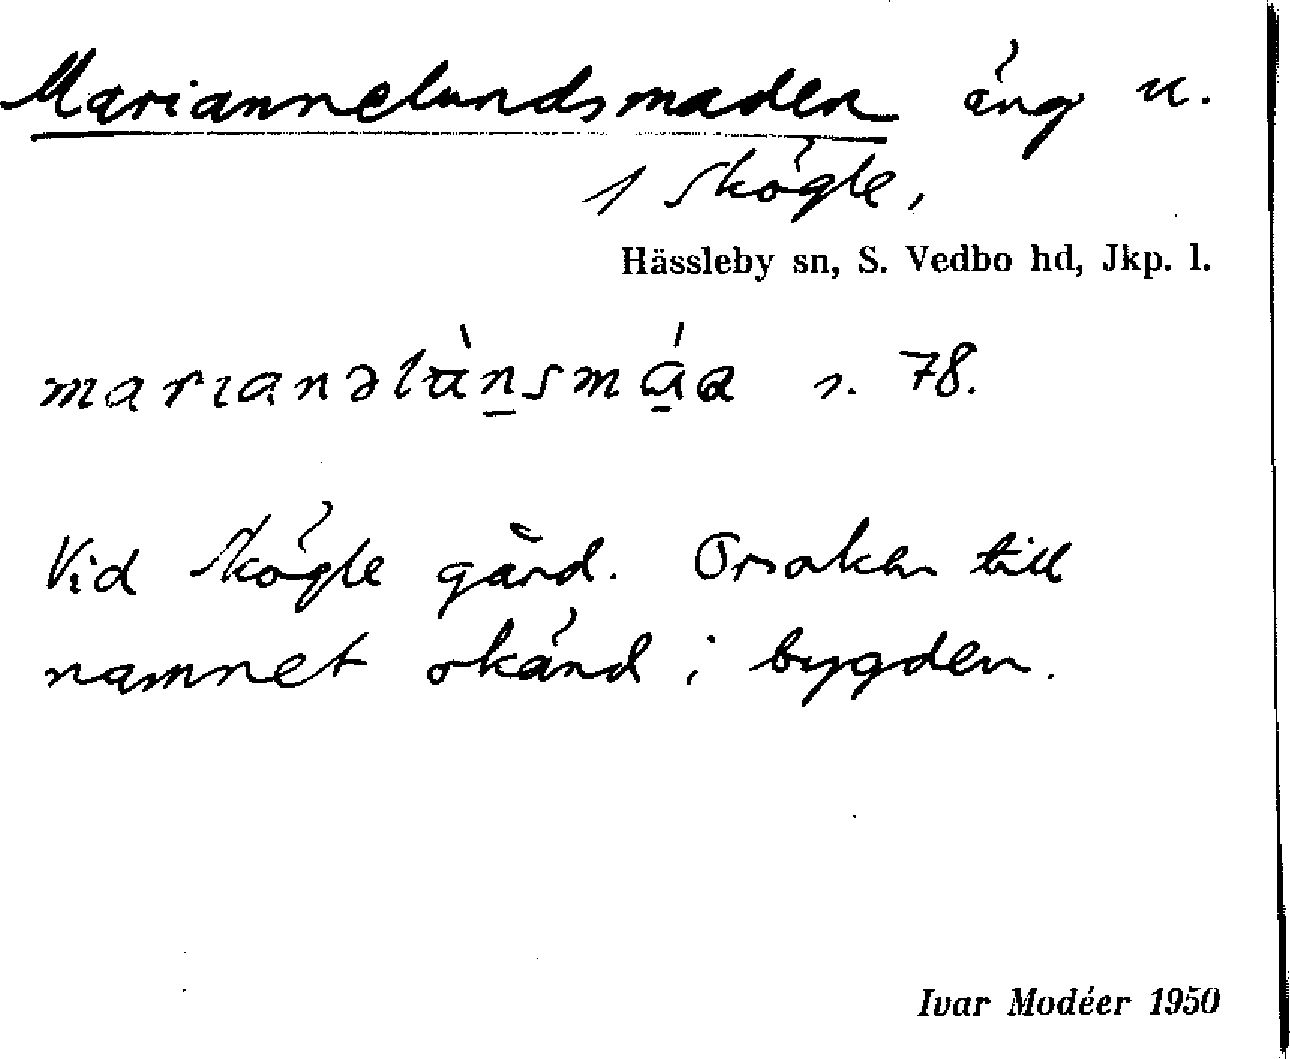 Mariannelundsmaden äng u.
1 Skögle,
Hässleby sn, S. Vedbo hd, Jkp. l.
marıanəlùn̠smá̠a s. 78.
Vid Skögle gård. Orsaken till
namnet okänd i bygden.
Ivar Modéer 1950